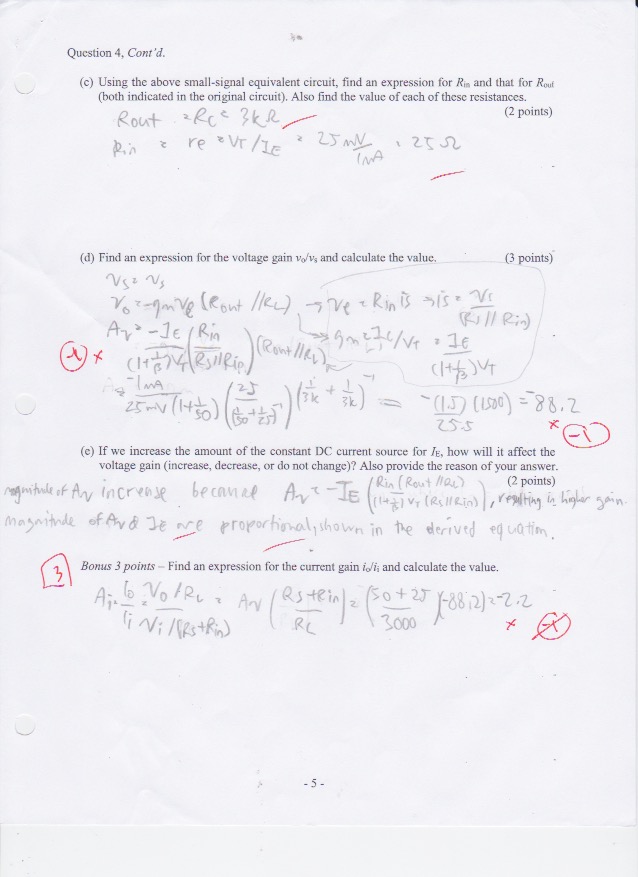 Question 4, Cont'd.
(c) Using the above small-signal equivalent circuit, find an expression for Rin and that for Rout
(both indicated in the original circuit). Also find the value of each of these resistances.
(2 points)
Rout = RC = 3kΩ
Rin = re = VT/IE = 25mV/1mA = 25Ω
(d) Find an expression for the voltage gain vo/vs and calculate the value. (3 points)
Vs = Vs
Vo = -gm Ve (Rout // RL) → Ve = Rin is → is = Vs/(Rs // Rin)
→ gm = IC/VT = IE/((1+1/β)VT)
Av = -IE/((1+1/β)VT) (Rin/(Rs//Rin)) (Rout//RL)
= -1mA/(25mV(1+1/50)) (25/(1/50+1/25)^-1) (1/3k + 1/3k)^-1 = -(1.5)(1500)/25.5 = -88.2
-1
(e) If we increase the amount of the constant DC current source for IE, how will it affect the
voltage gain (increase, decrease, or do not change)? Also provide the reason of your answer.
(2 points)
magnitude of Av increase because Av = -IE (Rin (Rout//RL)/((1+1/β) VT (Rs//Rin))), resulting in higher gain.
magnitude of Av & IE are proportional, shown in the derived equation.
3
Bonus 3 points – Find an expression for the current gain io/ii and calculate the value.
Ai = Io/Ii = (Vo/RL)/(Vi/(Rs+Rin)) = Av ((Rs+Rin)/RL) = ((50+25)/3000)(-88.2) = -2.2
- 5 -